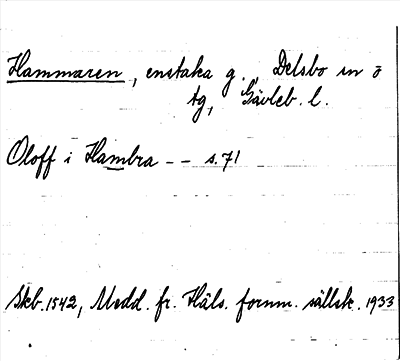 Hammaren, enstaka g., Delsbo sn o
tg, Gävleb. l.
Oloff i Hambra - - s. 71
Skb. 1542, Medd. fr. Häls. fornm. sällsk. 1933